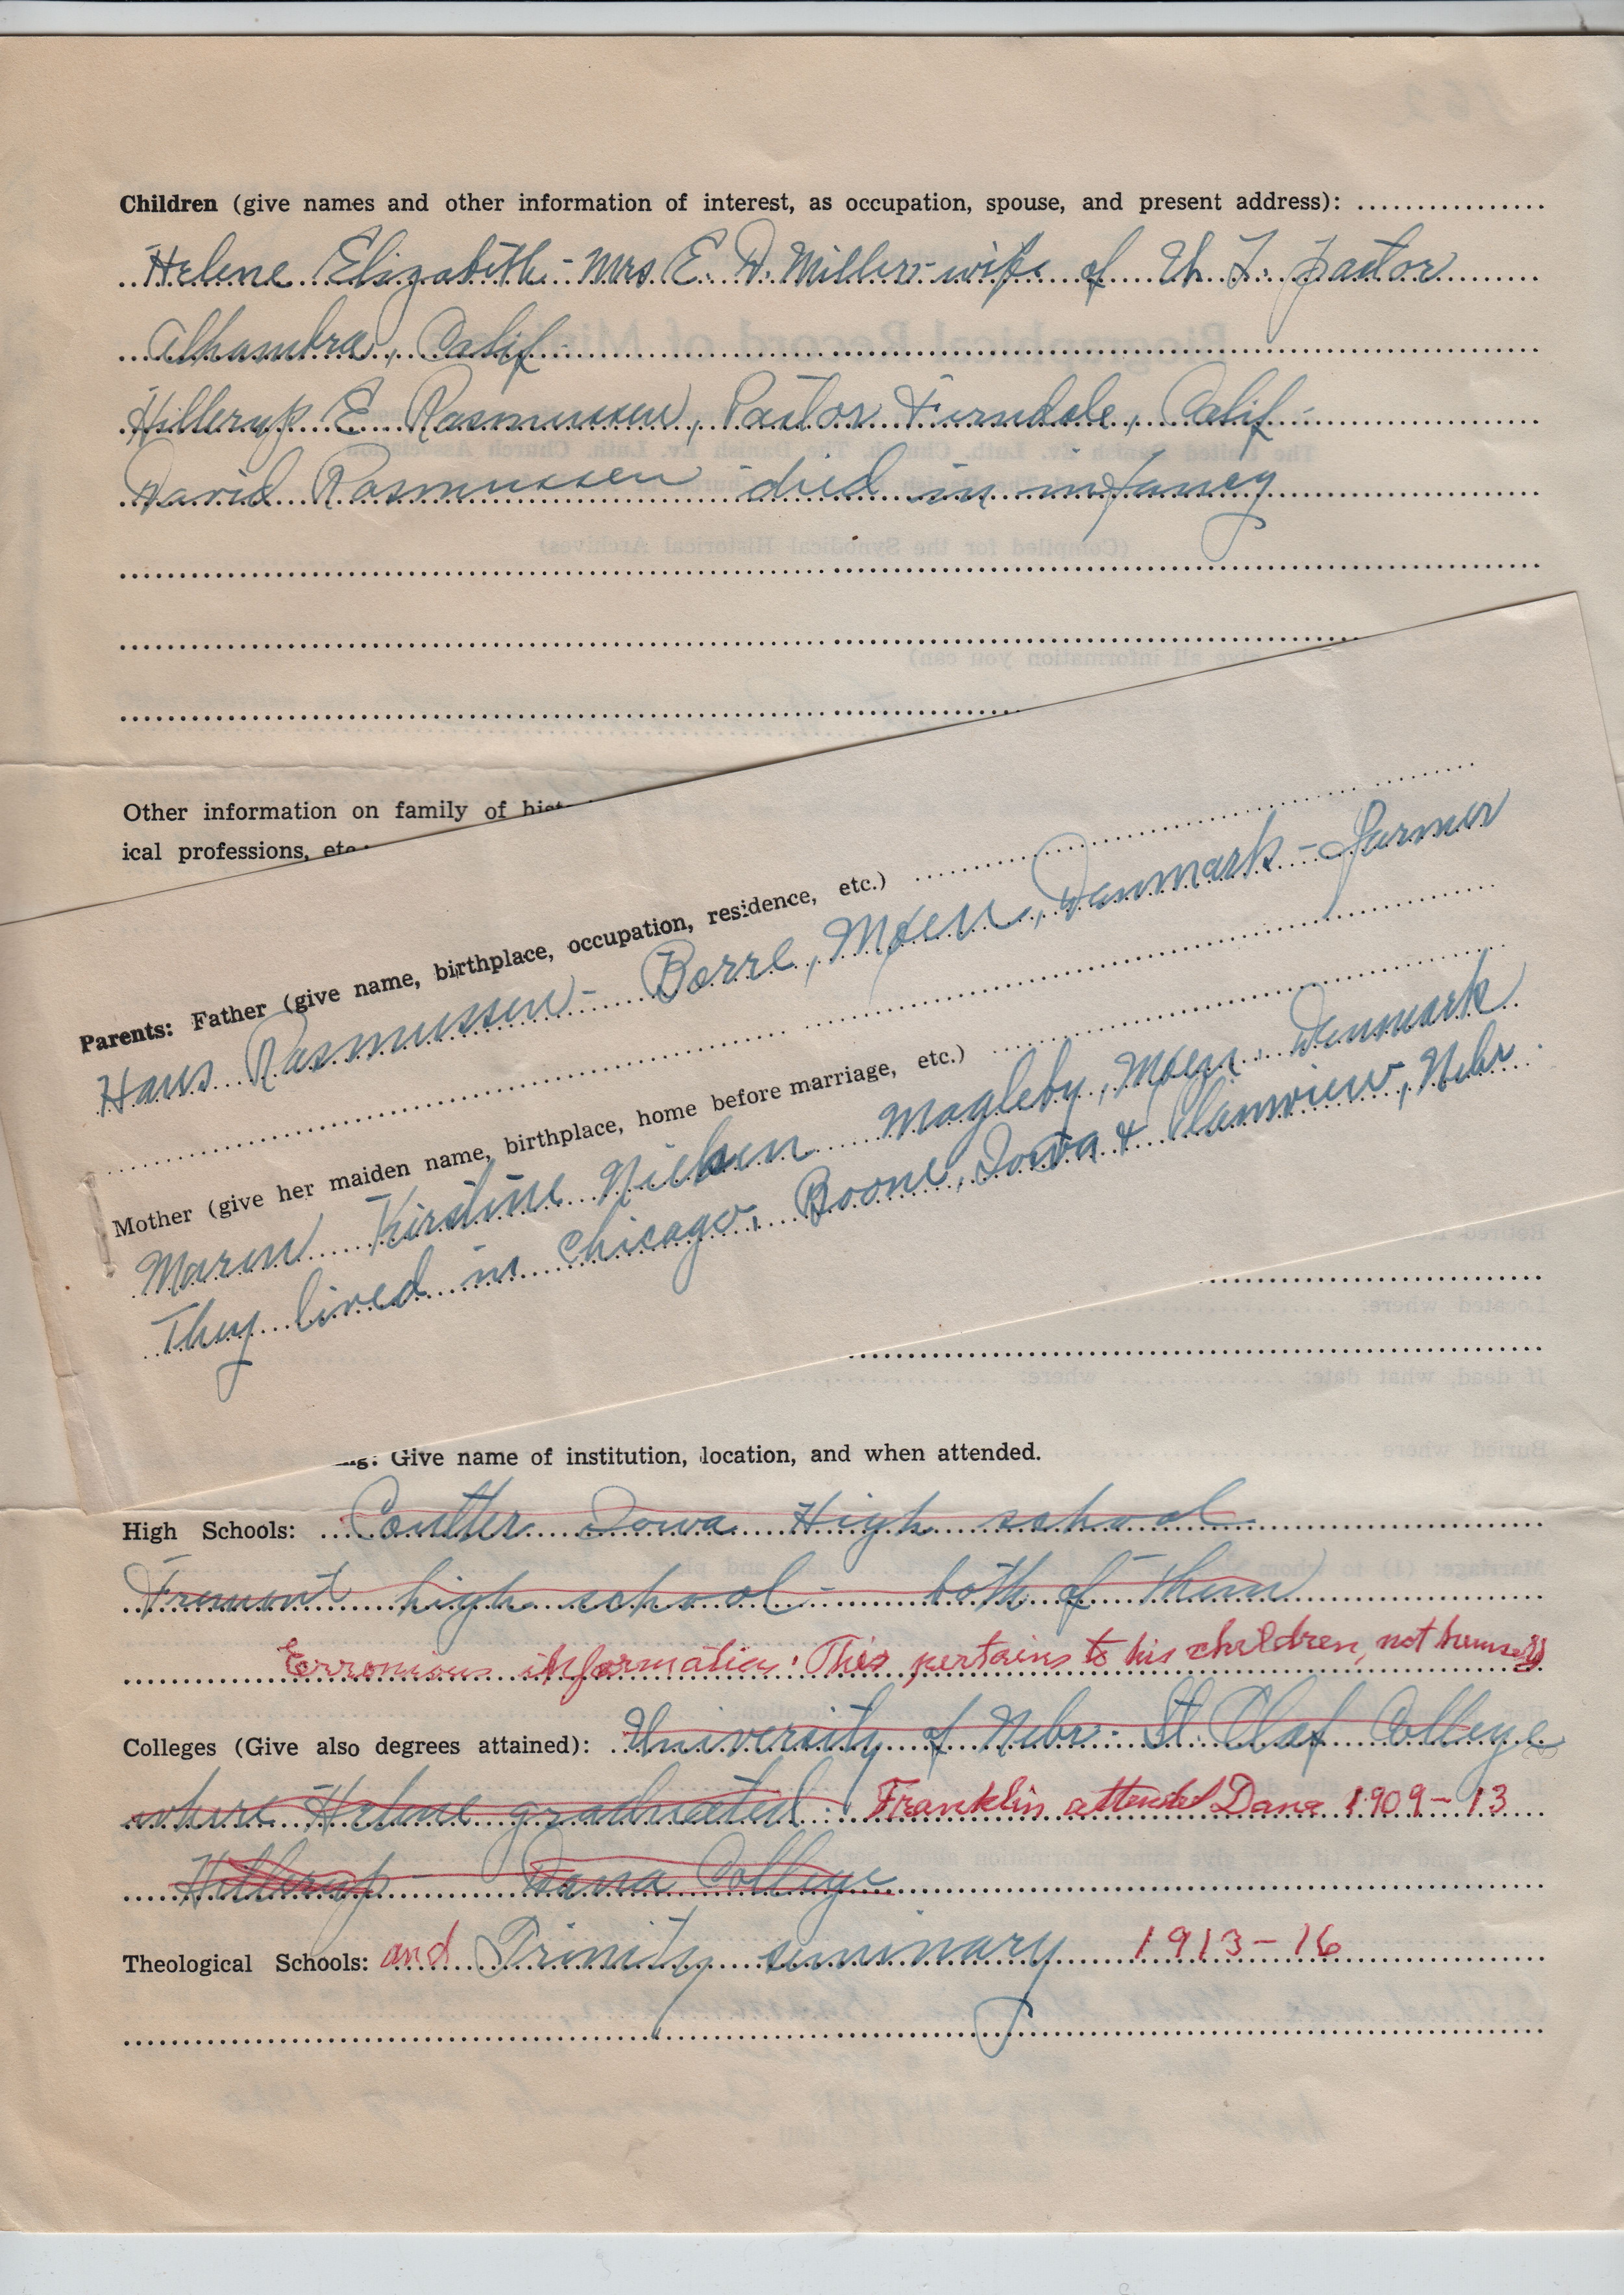 Children (give names and other information of interest, as occupation, spouse, and present address):
Helene Elizabeth - Mrs E. D. Miller - wife of U. L. Pastor
Alhambra, Calif -
Hillerup E Rasmussen, Pastor Ferndale, Calif -
David Rasmussen died in infancy
Other information on family of
ical professions, etc.
Parents: Father (give name, birthplace, occupation, residence, etc.)
Hans Rasmussen - Borre, Møen, Danmark - farmer
Mother (give her maiden name, birthplace, home before marriage, etc.)
Maren Kirstine Nielsen Magleby, Møen. Danmark
They lived in Chicago, Boone, Iowa & Plainview, Nebr.
Give name of institution, location, and when attended.
High Schools: Coulter Iowa High school
Fremont high school - both of them
Erronious information. This pertains to his children, not himself
Colleges (Give also degrees attained): University of Nebr - St. Olaf College
where Helene graduated. Franklin attended Dana 1909-13
Hillerup - Dana College
Theological Schools: and Trinity seminary 1913-16